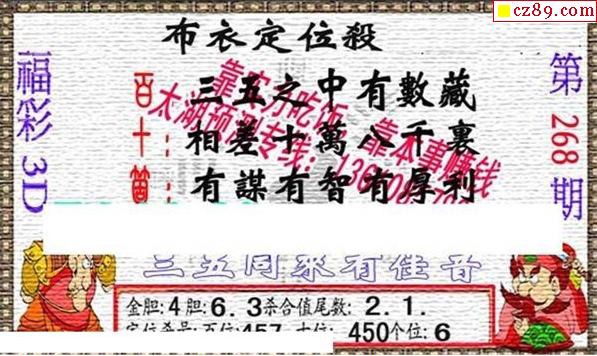 cz89.com
布衣定位殺
福彩3D
第268期
百: 三五之中有數藏
十: 相差十萬八千裏
個: 有謀有智有厚利
靠实力吃饭 靠本事赚钱
太湖预测专线:
三五同來有佳音
金胆:4胆:6.3杀合值尾数:2.1.
定位杀号:百位457 十位 450个位:6